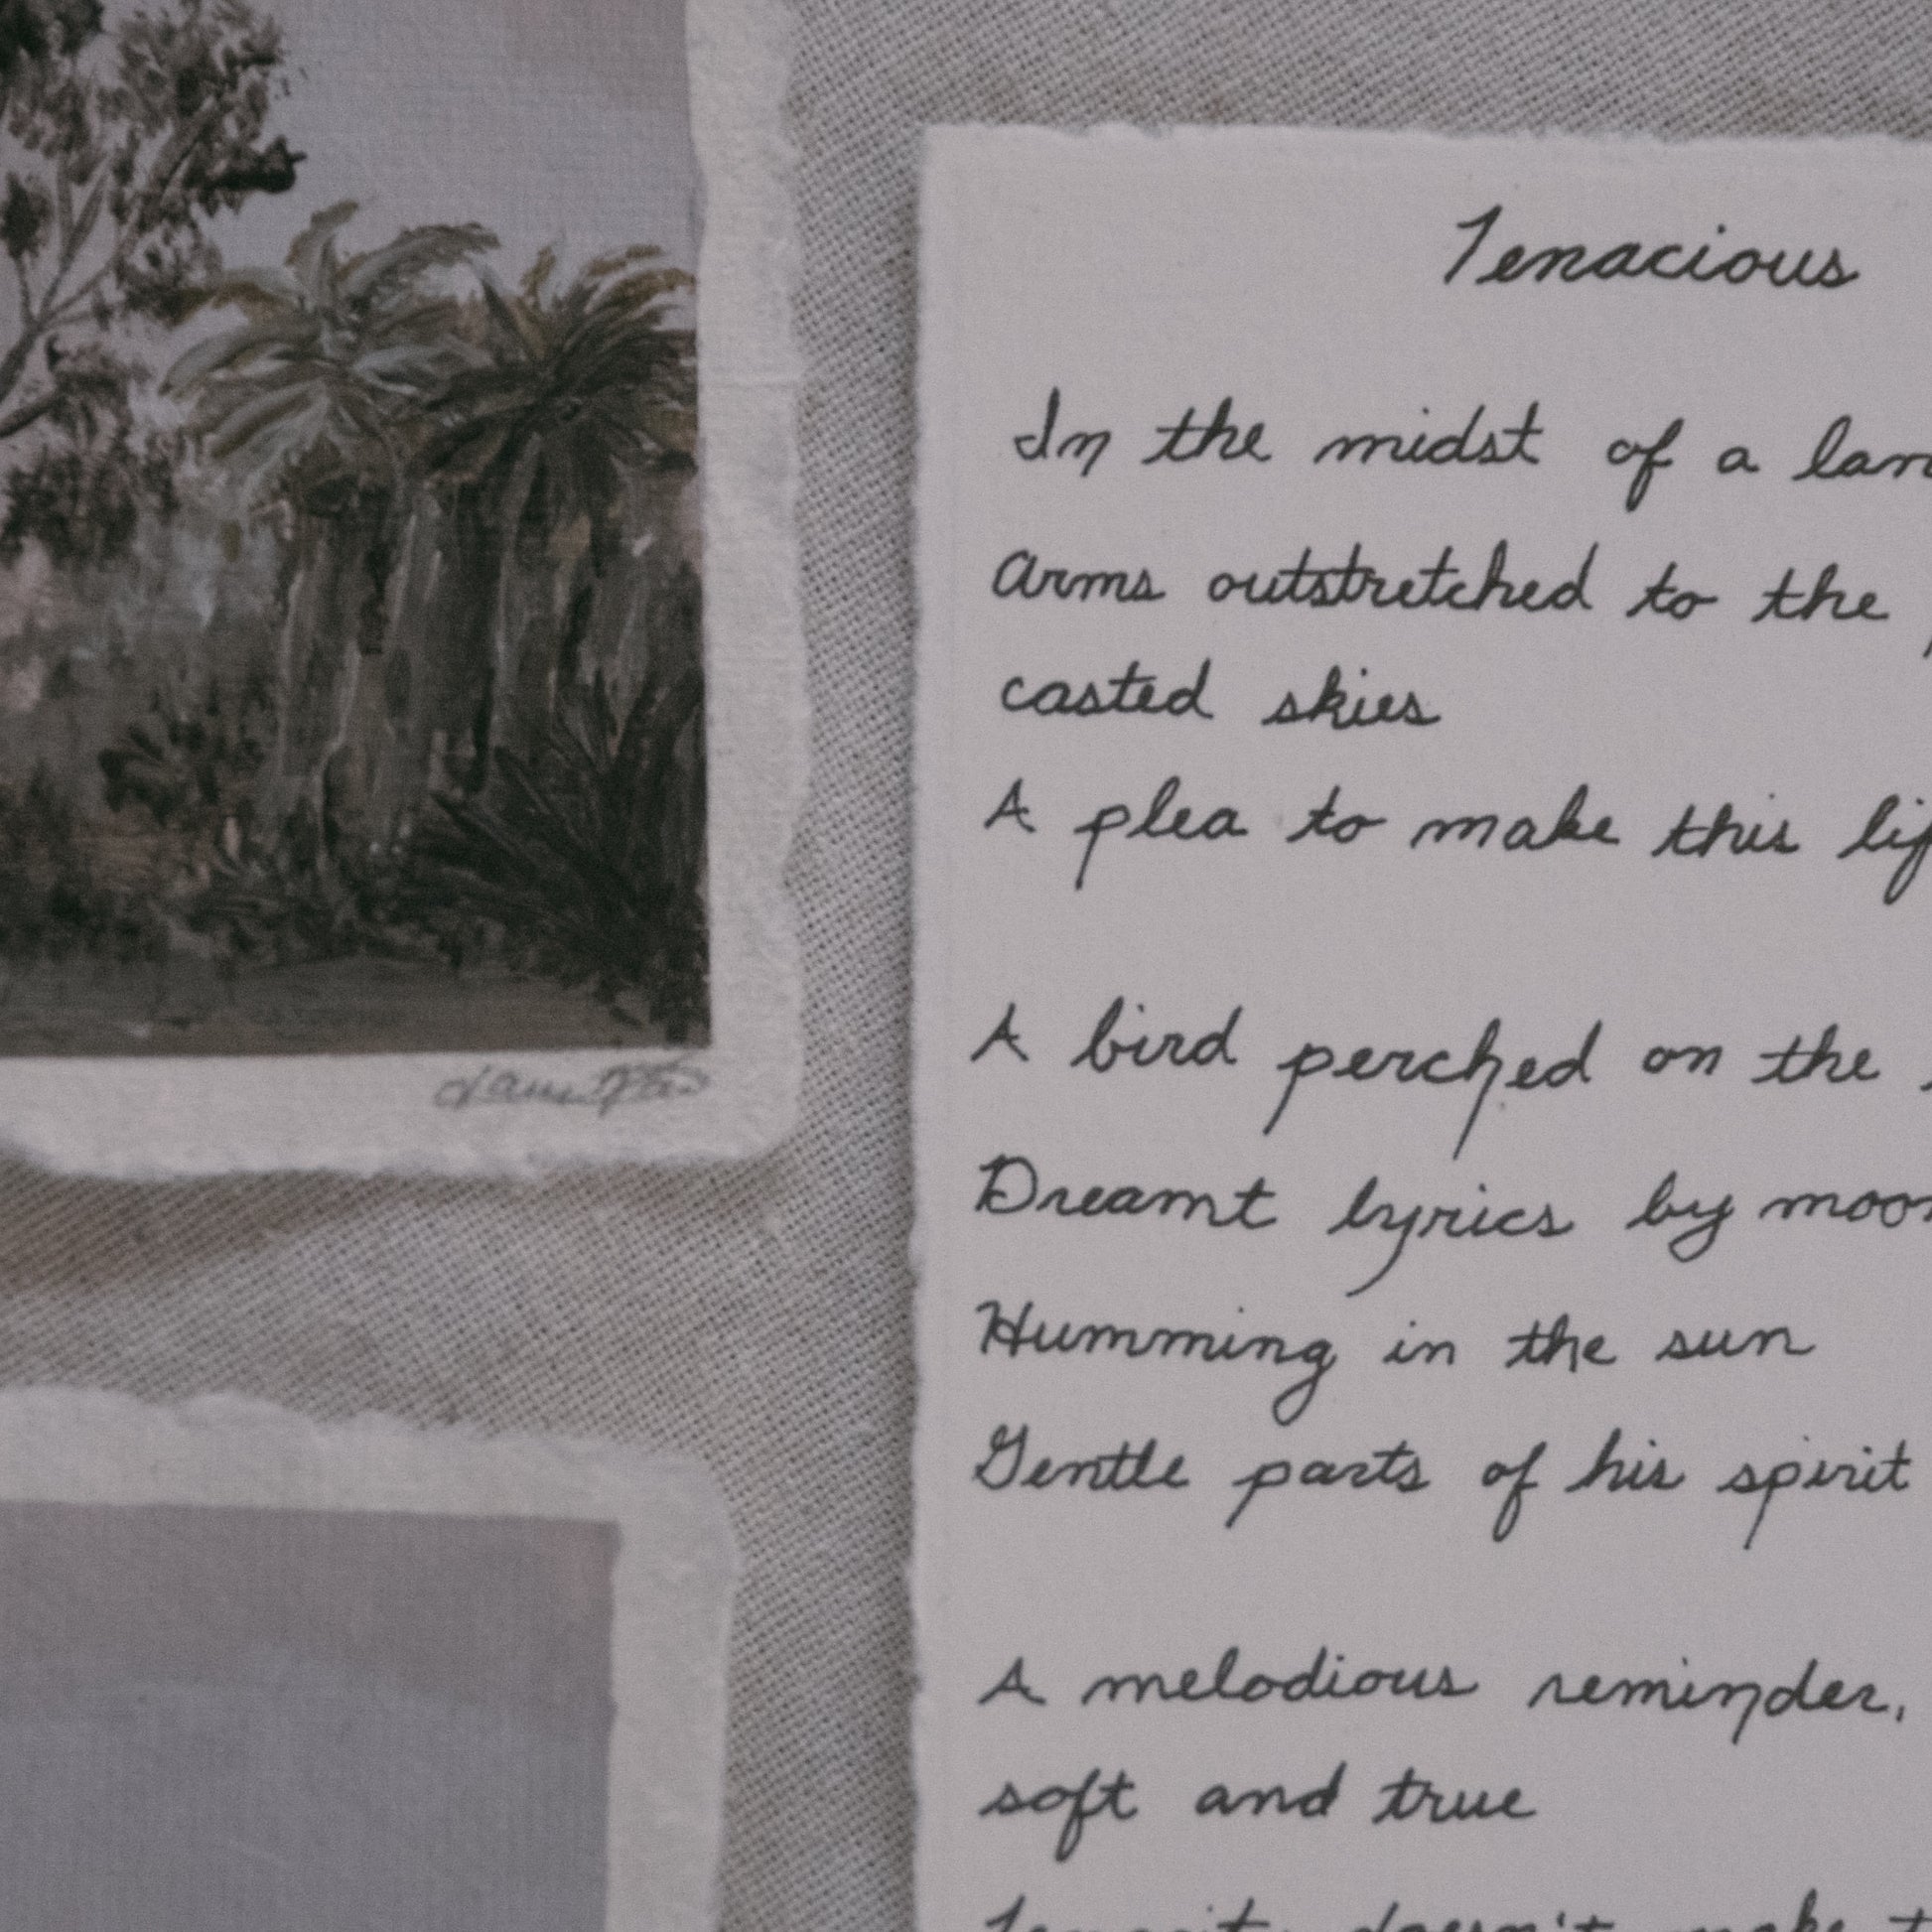 Tenacious
In the midst of a
Arms outstretched to the
casted skies
A plea to make this
A bird perched on the
Dreamt lyrics by
Humming in the sun
Gentle parts of his spirit
A melodious reminder,
soft and true
Tenacity doesn't make